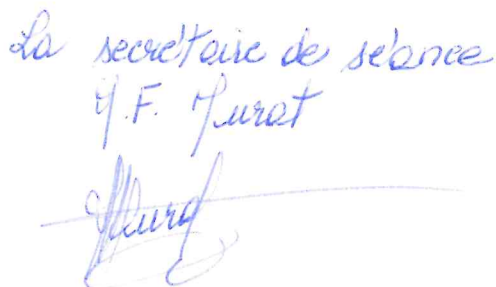 La secrétaire de séance
M.F. Murat